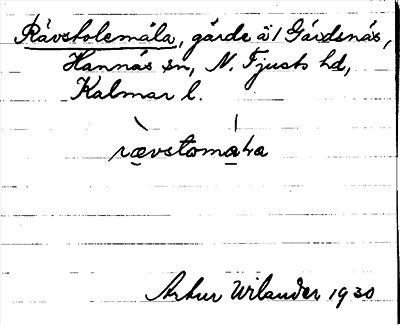 Rävstolemåla, gärde å 1 Gårdsnäs,
Hannäs sn, N. Tjusts hd,
Kalmar l.
rævstomaḷa
Artur Wilander 1930